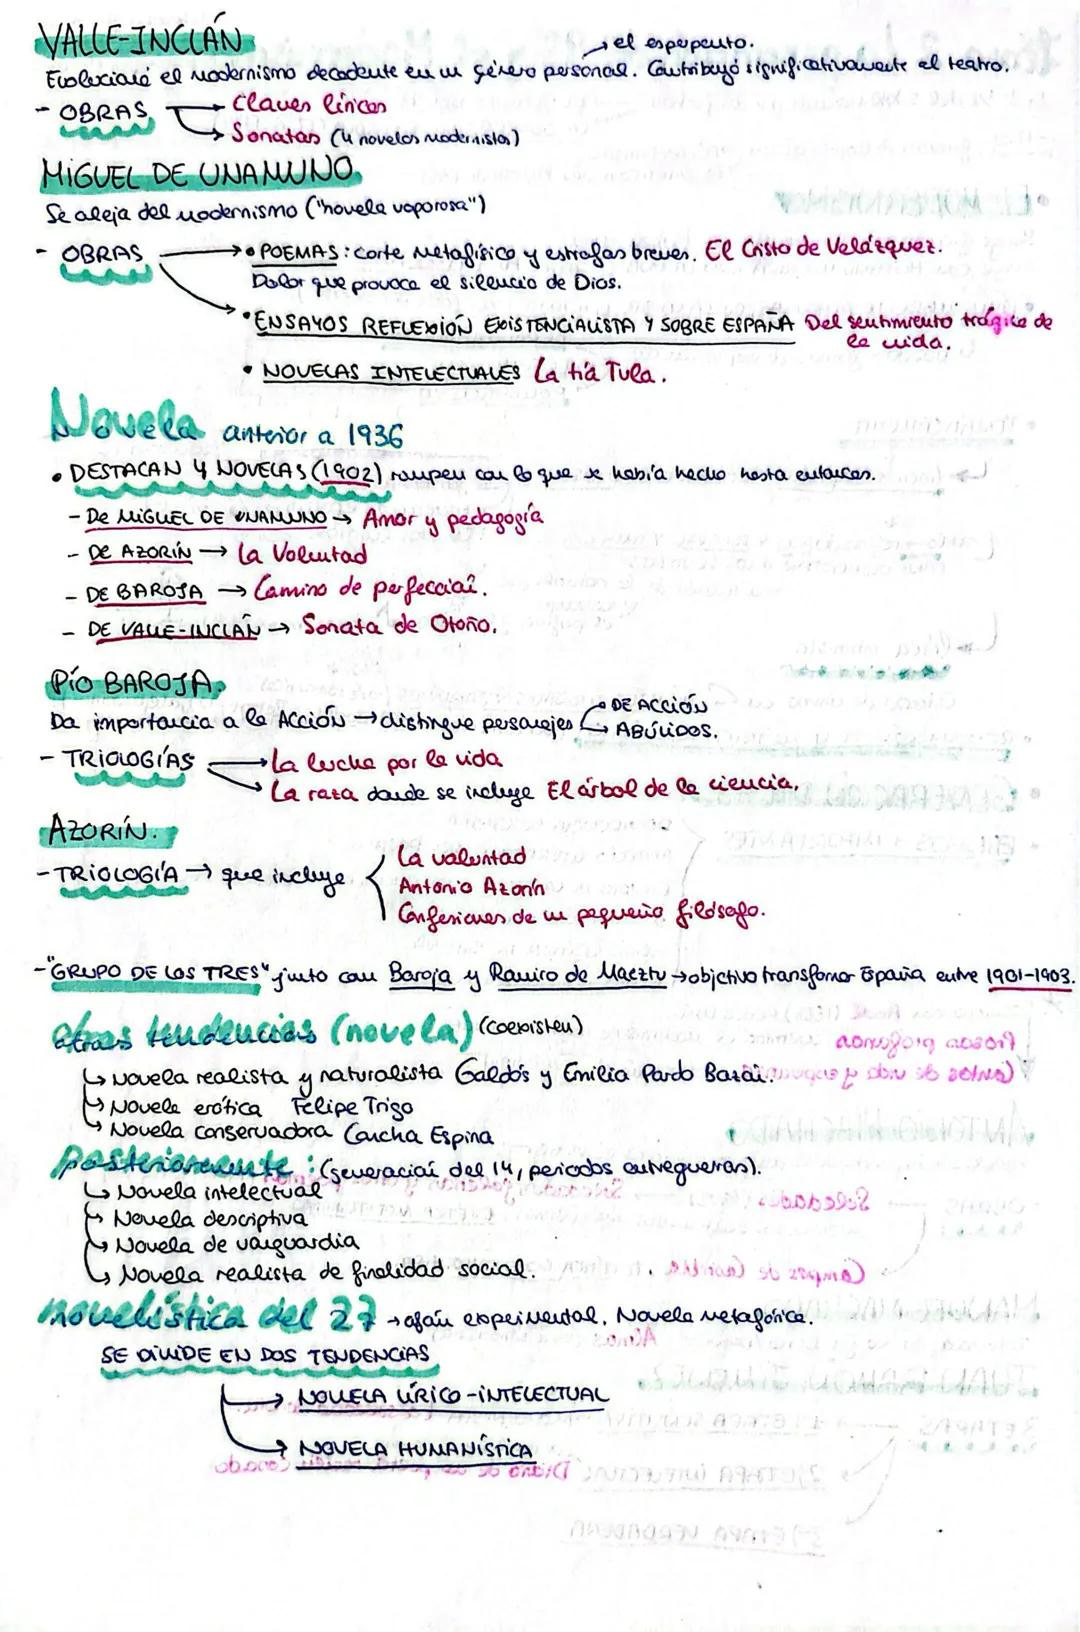 VALLE-INCLÁN
→ el esperpento.
Evolucioné el modernismo decadente en un género personal. Contribuyó significativamente al teatro.
- OBRAS → Claves líricas
→ Sonatas (4 novelas modernistas)
MIGUEL DE UNAMUNO.
Se aleja del modernismo ("novela vaporosa")
- OBRAS → • POEMAS: corte metafísico y estrofas breves. El Cristo de Velázquez.
Dolor que provoca el silencio de Dios.
→ • ENSAYOS REFLEXIÓN EXISTENCIALISTA Y SOBRE ESPAÑA Del sentimiento trágico de
la vida.
• NOVELAS INTELECTUALES La tía Tula.
Novela anterior a 1936
• DESTACAN 4 NOVELAS (1902) rompen con lo que se había hecho hasta entonces.
- De MIGUEL DE UNAMUNO → Amor y pedagogía
- DE AZORÍN → La Voluntad
- DE BAROJA → Camino de perfección.
- DE VALLE-INCLÁN → Sonata de Otoño.
PÍO BAROJA.
Da importancia a la Acción → distingue personajes → DE ACCIÓN
→ ABÚLIDOS.
- TRIOLOGÍAS → La lucha por la vida
→ La raza donde se incluye El árbol de la ciencia.
AZORÍN.
- TRIOLOGÍA → que incluye { La voluntad
Antonio Azorín
Confesiones de un pequeño filósofo.
- "GRUPO DE LOS TRES" junto con Baroja y Ramiro de Maeztu → objectivo transformar España entre 1901-1903.
otras tendencias (novela) (coexisten)
↳ Novela realista y naturalista Galdós y Emilia Pardo Bazán.
↳ Novela erótica Felipe Trigo
↳ Novela conservadora Concha Espina
Posteriormente: (generación del 14, periodos entreguerras).
↳ Novela intelectual
↳ Novela descriptiva
↳ Novela de vanguardia
↳ Novela realista de finalidad social.
novelística del 27 → afán experimental. Novela metafórica.
SE DIVIDE EN DOS TENDENCIAS
→ NOVELA LÍRICO-INTELECTUAL
→ NOVELA HUMANÍSTICA